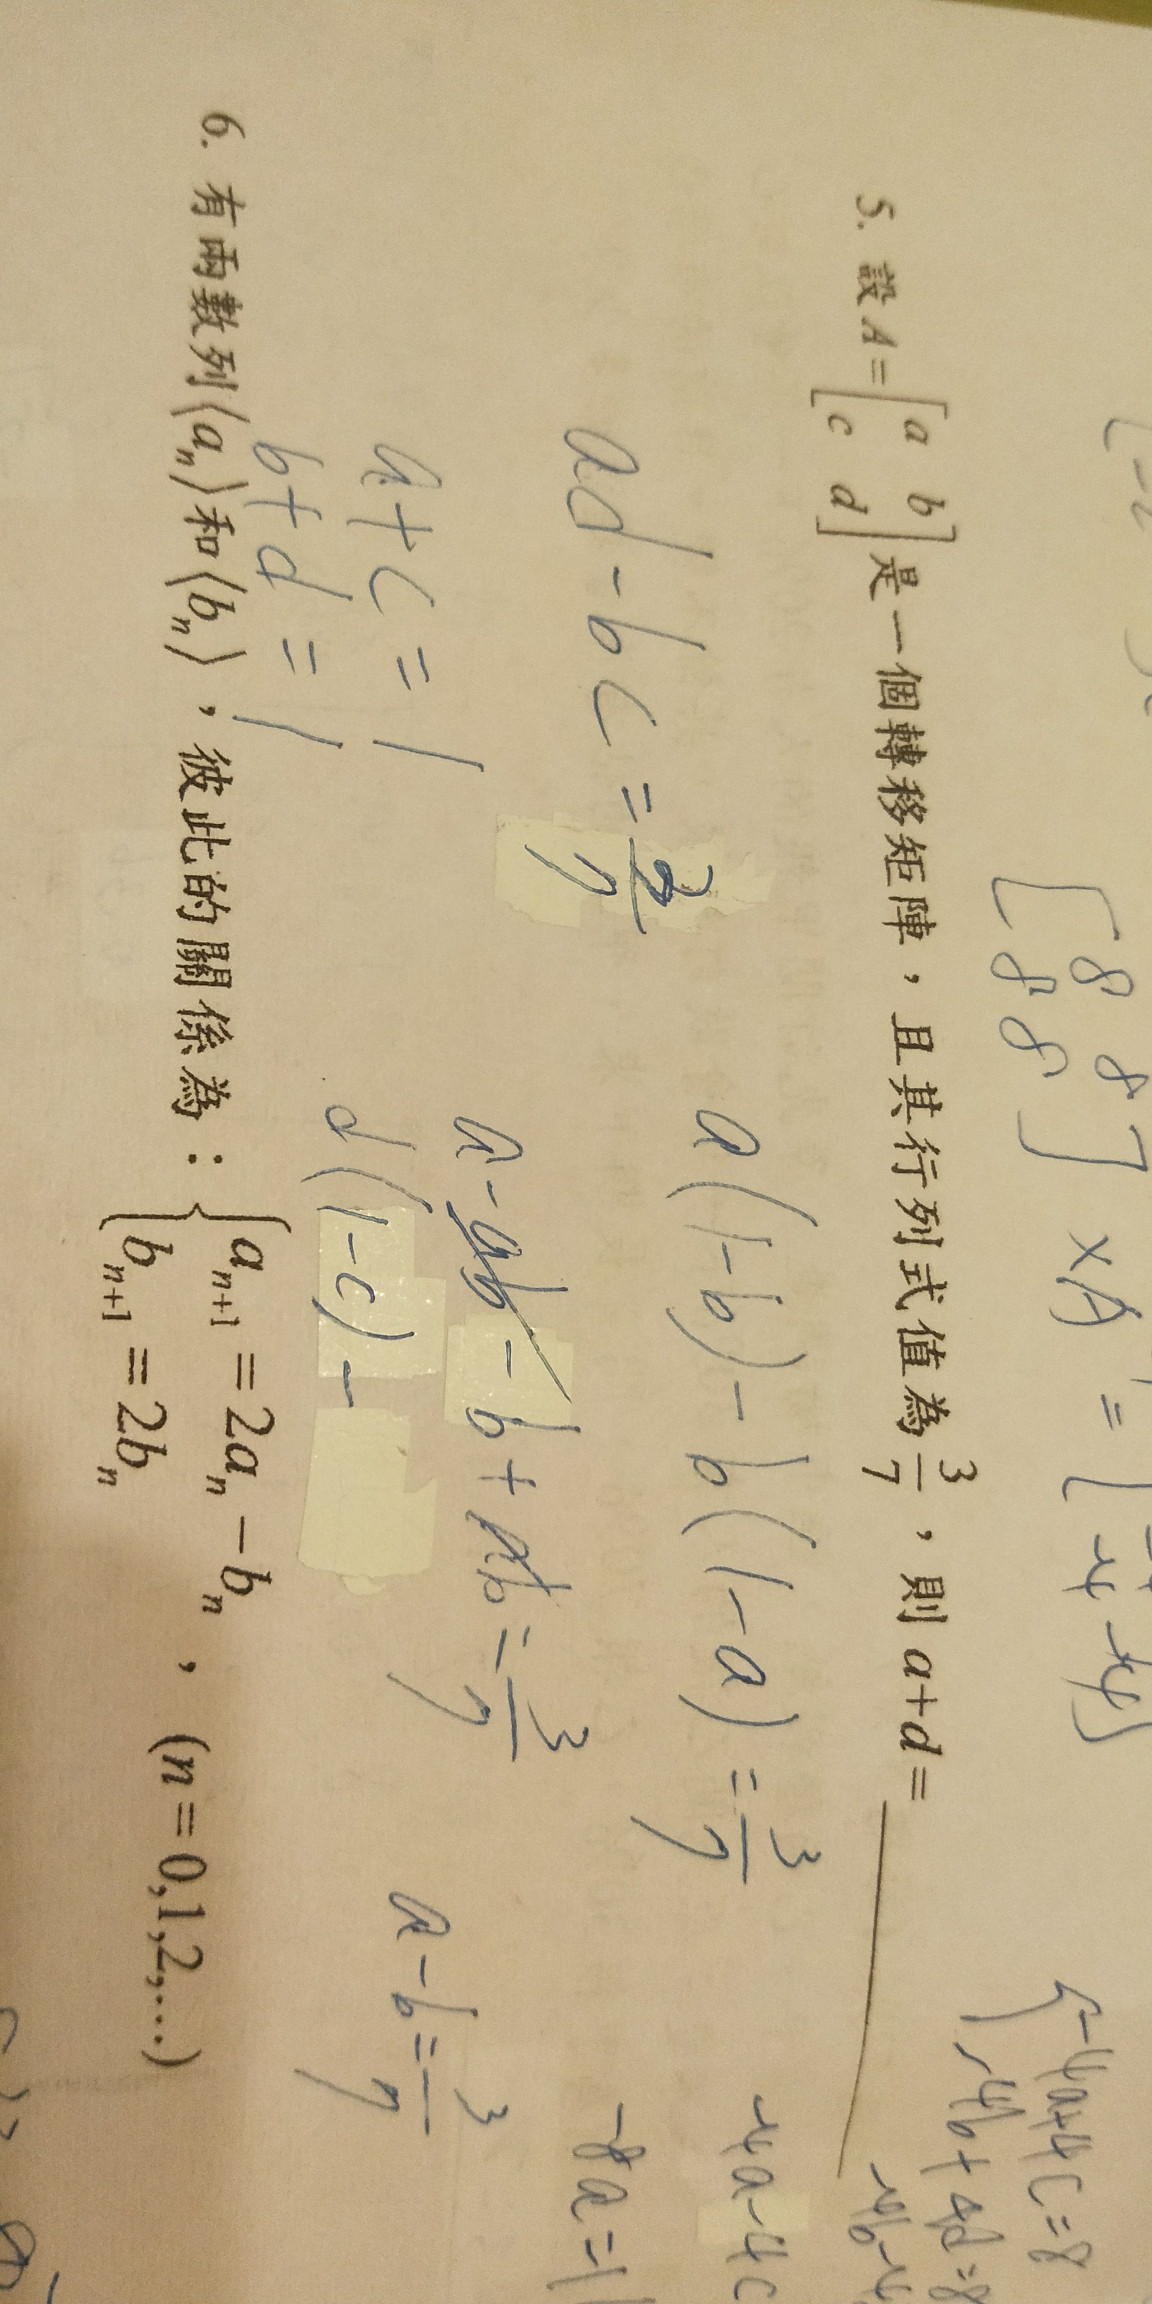 [8 8
8 8] × A =
{-4a+4c=8
-4b+4d=8
5. 設 A = [a b
c d] 是一個轉移矩陣,且其行列式值為 3/7,則 a+d =
ad - bc = 3/7
a(1-b) - b(1-a) = 3/7
a+c=1
a - ab - b + ab = 3/7
b+d=1
d(1-c) -
a-b = 3/7
6. 有兩數列⟨aₙ⟩和⟨bₙ⟩,彼此的關係為:{aₙ₊₁ = 2aₙ - bₙ
bₙ₊₁ = 2bₙ , (n = 0,1,2,…)